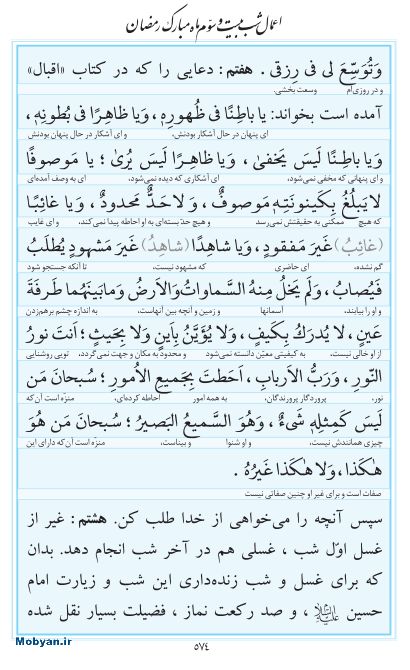 اعمال شب بیست و سوم ماه مبارک رمضان
وَتُوَسِّعَ لی فی رِزقی . هفتم: دعایی را که در کتاب «اقبال»
و در روزی‌ام وسعت بخشی.
آمده است بخواند: یا باطِنًا فی ظُهورِهِ، وَیا ظاهِرًا فی بُطونِهِ،
ای پنهان در حال آشکار بودنش، و ای آشکار در حال پنهان بودنش
وَیا باطِنًا لَیسَ یَخفیٰ ، وَیا ظاهِرًا لَیسَ یُریٰ؛ یا مَوصوفًا
و ای پنهانی که مخفی نمی‌شود، ای آشکاری که دیده نمی‌شود، ای به وصف آمده‌ای
لا یَبلُغُ بِکَینونَتِهِ مَوصوفٌ، وَلا حَدٌّ مَحدودٌ ، وَیا غائِبًا
که هیچ ممکنی به حقیقتش نمی‌رسد و هیچ حدّ بسته‌ای به او احاطه پیدا نمی‌کند، و ای غایب
(غائِبُ) غَیرَ مَفقودٍ، وَیا شاهِدًا (شاهِدُ) غَیرَ مَشهودٍ یُطلَبُ
گم نشده، ای حاضری که مشهود نیست، تا آنکه جستجو شود
فَیُصابُ، وَلَم یَخلُ مِنهُ السَّماواتُ وَالاَرضُ وَمابَینَهُما طَرفَةَ
و او را بیابند، آسمانها و زمین و آنچه بین آنهاست، به اندازه چشم برهم‌زدن
عَینٍ، لا یُدرَكُ بِکَیفٍ، وَلا یُؤَیَّنُ بِاَینٍ وَلا بِحَیثٍ؛ اَنتَ نورُ
از او خالی نیست، به کیفیتی معیّن دانسته نمی‌شود و محدود به مکان و جهت نمی‌گردد، تویی روشنایی
النّورِ، وَرَبُّ الاَربابِ، اَحَطتَ بِجَمیعِ الاُمورِ؛ سُبحانَ مَن
نور، پروردگار پرورندگان، به همه امور احاطه کرده‌ای، منزّه است آن که
لَیسَ کَمِثلِهِ شَیءٌ، وَهُوَ السَّمیعُ البَصیرُ؛ سُبحانَ مَن هُوَ
چیزی همانندش نیست، و او شنوا و بیناست، منزّه است آن که دارای این
هٰکَذا، وَلا هٰکَذا غَیرُهُ .
صفات است و برای غیر او چنین صفاتی نیست
سپس آنچه را می‌خواهی از خدا طلب کن. هشتم: غیر از
غسل اوّل شب ، غسلی هم در آخر شب انجام دهد. بدان
که برای غسل و شب زنده‌داری این شب و زیارت امام
حسین علیه‌السلام ، و صد رکعت نماز ، فضیلت بسیار نقل شده
۵۷۴
Mobyan.ir